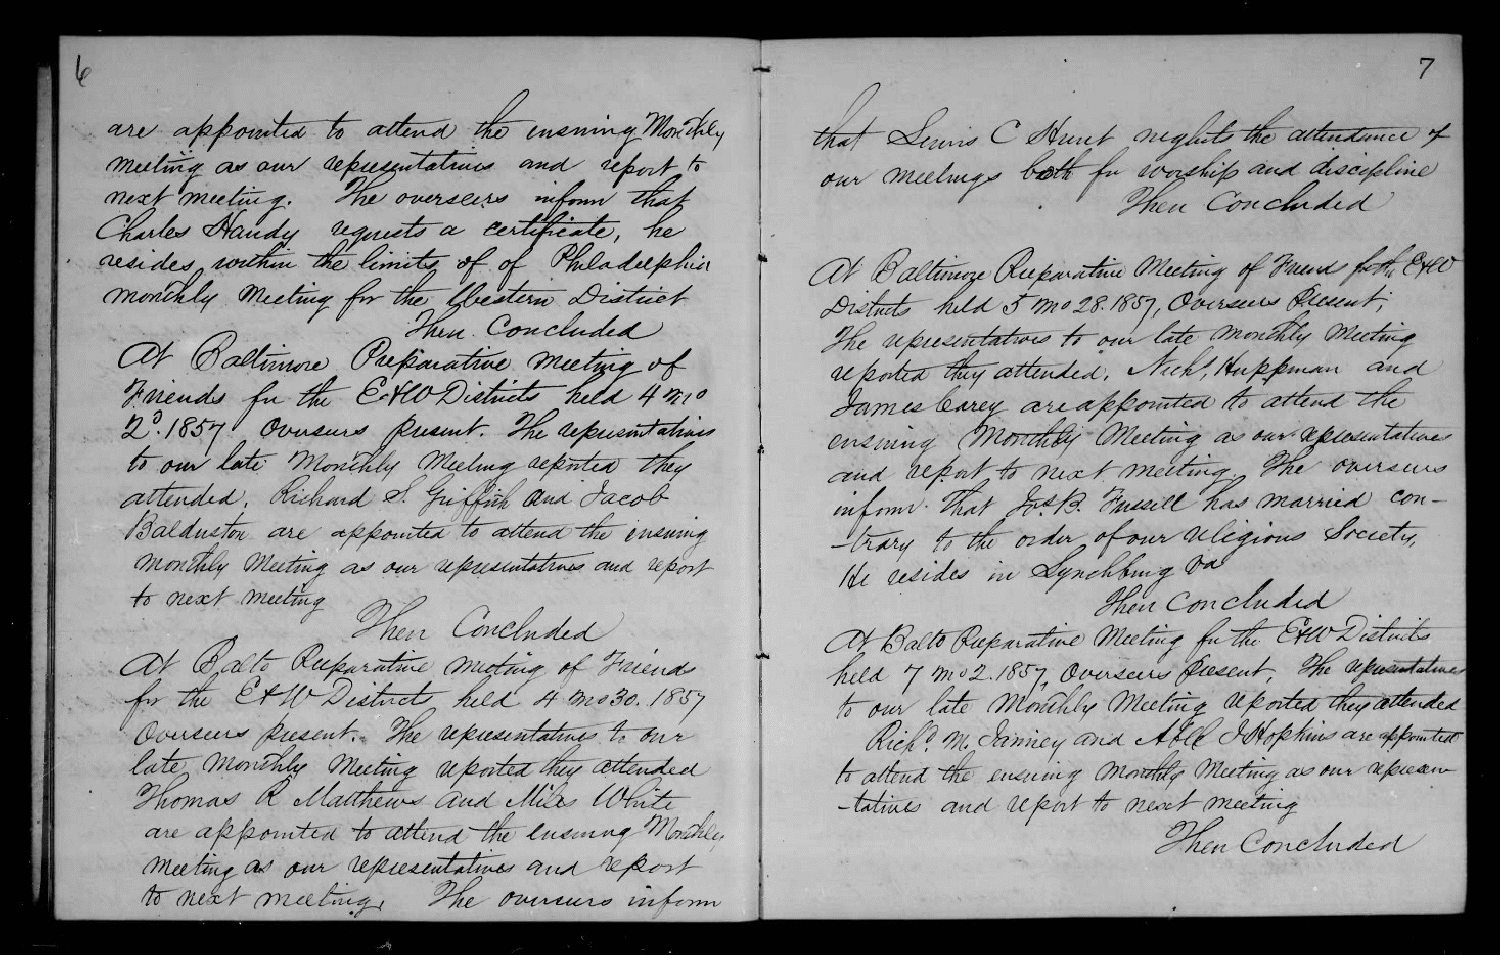 6
are appointed to attend the ensuing Monthly
meeting as our representatives and report to
next meeting. The overseers inform that
Charles Handy requests a certificate, he
resides within the limits of of Philadelphia
monthly Meeting for the Western District
Then Concluded
At Baltimore Preparative meeting of
Friends for the E&W Districts held 4 mo
2d. 1857 Overseers present. The representatives
to our late Monthly Meeting reported they
attended. Richard S. Griffith and Jacob
Balduston are appointed to attend the ensuing
monthly Meeting as our representatives and report
to next meeting
Then Concluded
At Balto Preparative meeting of Friends
for the E&W Districts held 4 mo 30. 1857
Overseers present. The representatives to our
late Monthly Meeting reported they attended
Thomas R Matthews and Miles White
are appointed to attend the ensuing Monthly
meeting as our representatives and report
to next meeting. The overseers inform
7
that Lewis C Hunt neglects the attendance of
our meetings both for worship and discipline
Then Concluded
At Baltimore Preparative Meeting of Friends for the E&W
Districts held 5 mo 28. 1857, Overseers Present;
The representatives to our late monthly Meeting
reported they attended. Nichs. Huppman and
James Carey are appointed to attend the
ensuing Monthly Meeting as our representatives
and report to next meeting. The overseers
inform that Jos. B. Fussell has married con-
-trary to the order of our religious Society,
He resides in Lynchburg Va
Then Concluded
At Balto Preparative Meeting for the E&W Districts
held 7 mo 2. 1857, Overseers Present, The representatives
to our late Monthly Meeting reported they attended
Richd. M. Janney and J Hopkins are appointed
to attend the ensuing monthly Meeting as our represen
-tatives and report to next meeting
Then Concluded